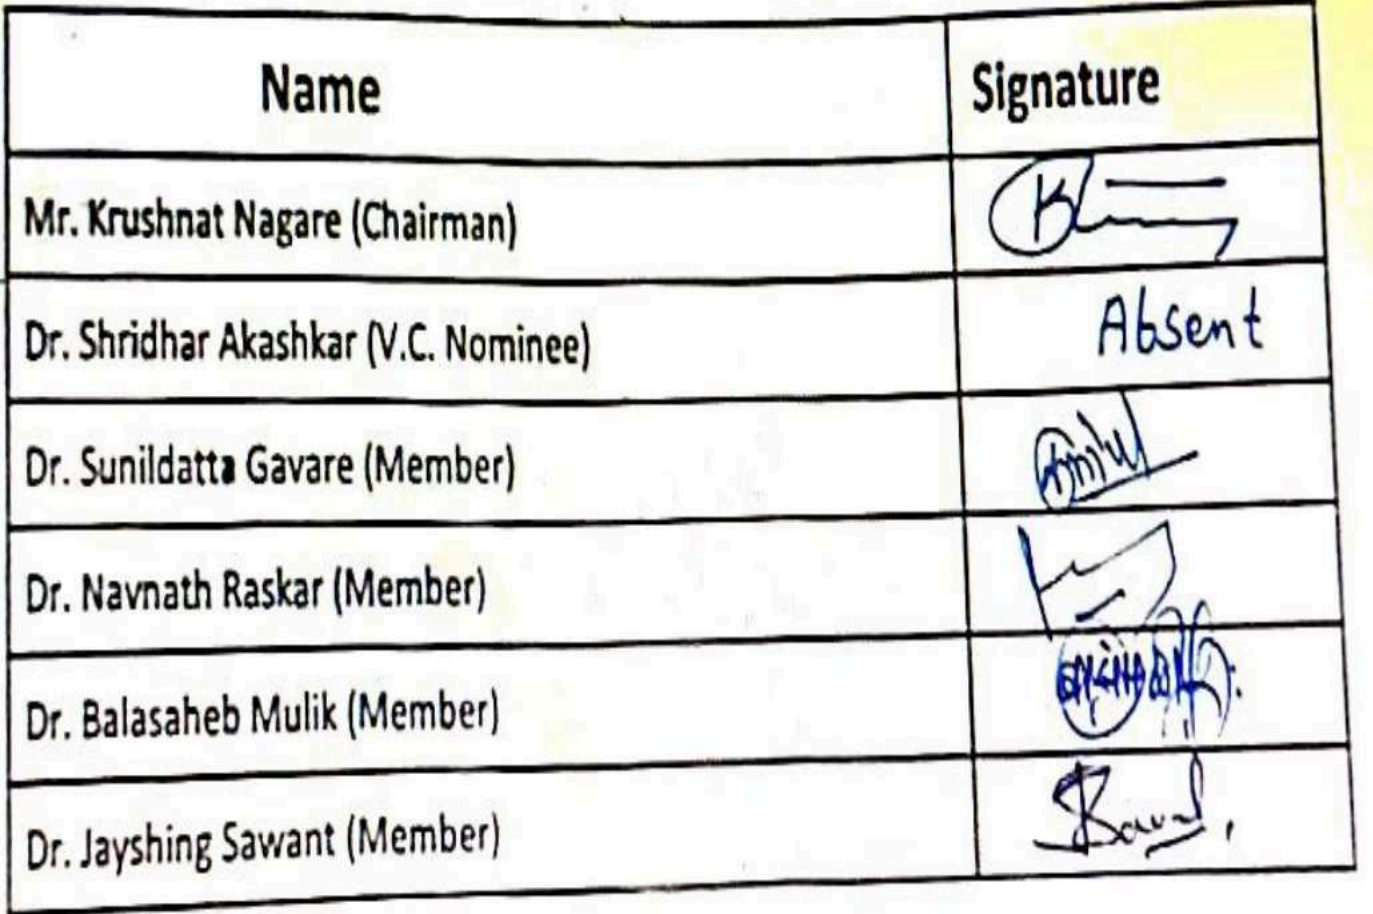 Name Signature
Mr. Krushnat Nagare (Chairman)
Dr. Shridhar Akashkar (V.C. Nominee) Absent
Dr. Sunildatta Gavare (Member)
Dr. Navnath Raskar (Member)
Dr. Balasaheb Mulik (Member)
Dr. Jayshing Sawant (Member)